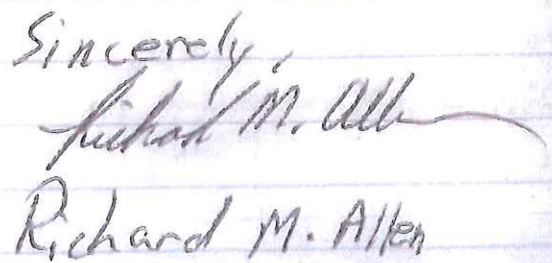 Sincerely,
Richard M. Allen
Richard M. Allen